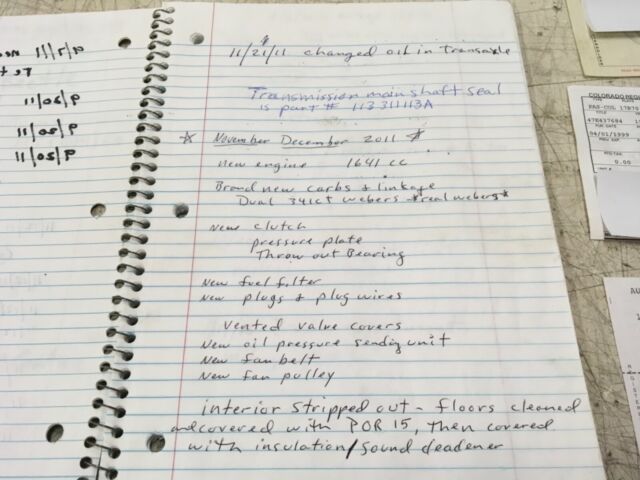 9/7/11
9/20/11
9/20/11
9/20/11
11/21/11 changed oil in Transaxle
Transmission main shaft seal
is part # 113 311 113A
☆ November December 2011 ☆
New engine 1641 cc
Brand new carbs & linkage
Dual 34ict webers *real webers*
New clutch
pressure plate
Throw out Bearing
New fuel filter
New plugs & plug wires
Vented valve covers
New oil pressure sendig unit
New fan belt
New fan pulley
interior stripped out - floors cleaned
and covered with POR 15, then covered
with insulation/sound deadener
COLORADO REGI
PAS-CUL 17870
47E437684
04/01/1999
0.00
AU